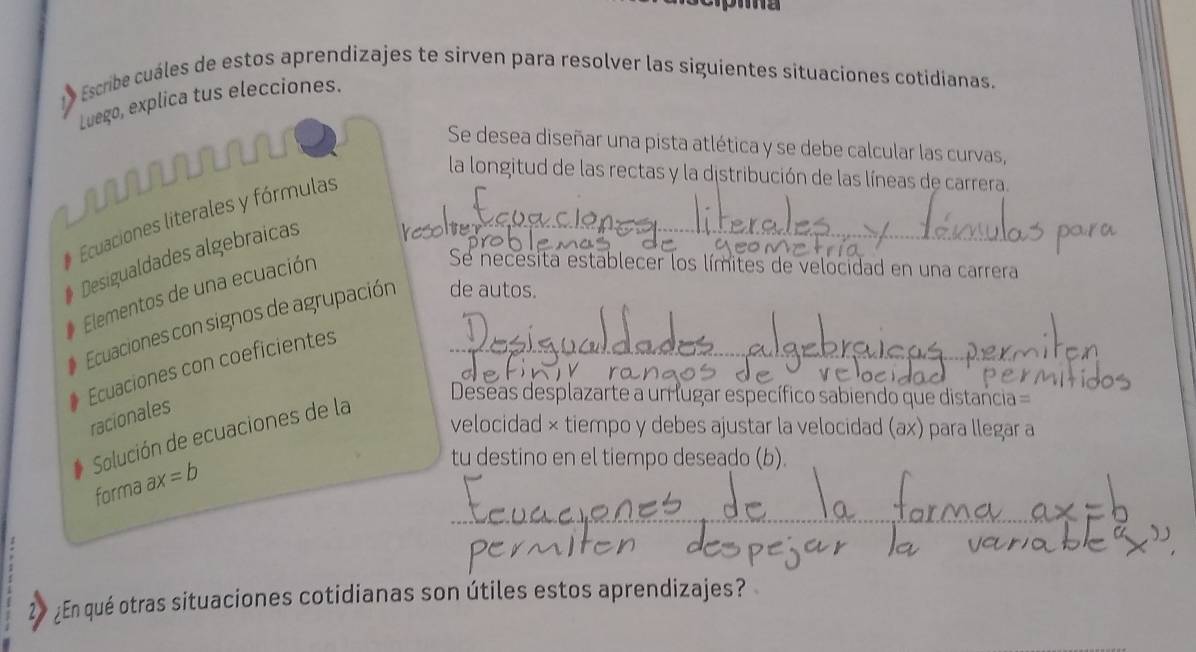 1 Escribe cuáles de estos aprendizajes te sirven para resolver las siguientes situaciones cotidianas.
Luego, explica tus elecciones.
Ecuaciones literales y fórmulas
Desigualdades algebraicas
Elementos de una ecuación
Ecuaciones con signos de agrupación
Ecuaciones con coeficientes
racionales
Solución de ecuaciones de la
forma ax = b
Se desea diseñar una pista atlética y se debe calcular las curvas,
la longitud de las rectas y la distribución de las líneas de carrera.
resolver Ecuaciones literales y fórmulas para
problemas de geometría
Se necesita establecer los límites de velocidad en una carrera
de autos.
Desigualdades algebraicas permiten
definir rangos de velocidad permitidos
Deseas desplazarte a un lugar específico sabiendo que distancia =
velocidad × tiempo y debes ajustar la velocidad (ax) para llegar a
tu destino en el tiempo deseado (b).
Ecuaciones de la forma ax = b
permiten despejar la variable "x".
2 ¿En qué otras situaciones cotidianas son útiles estos aprendizajes?